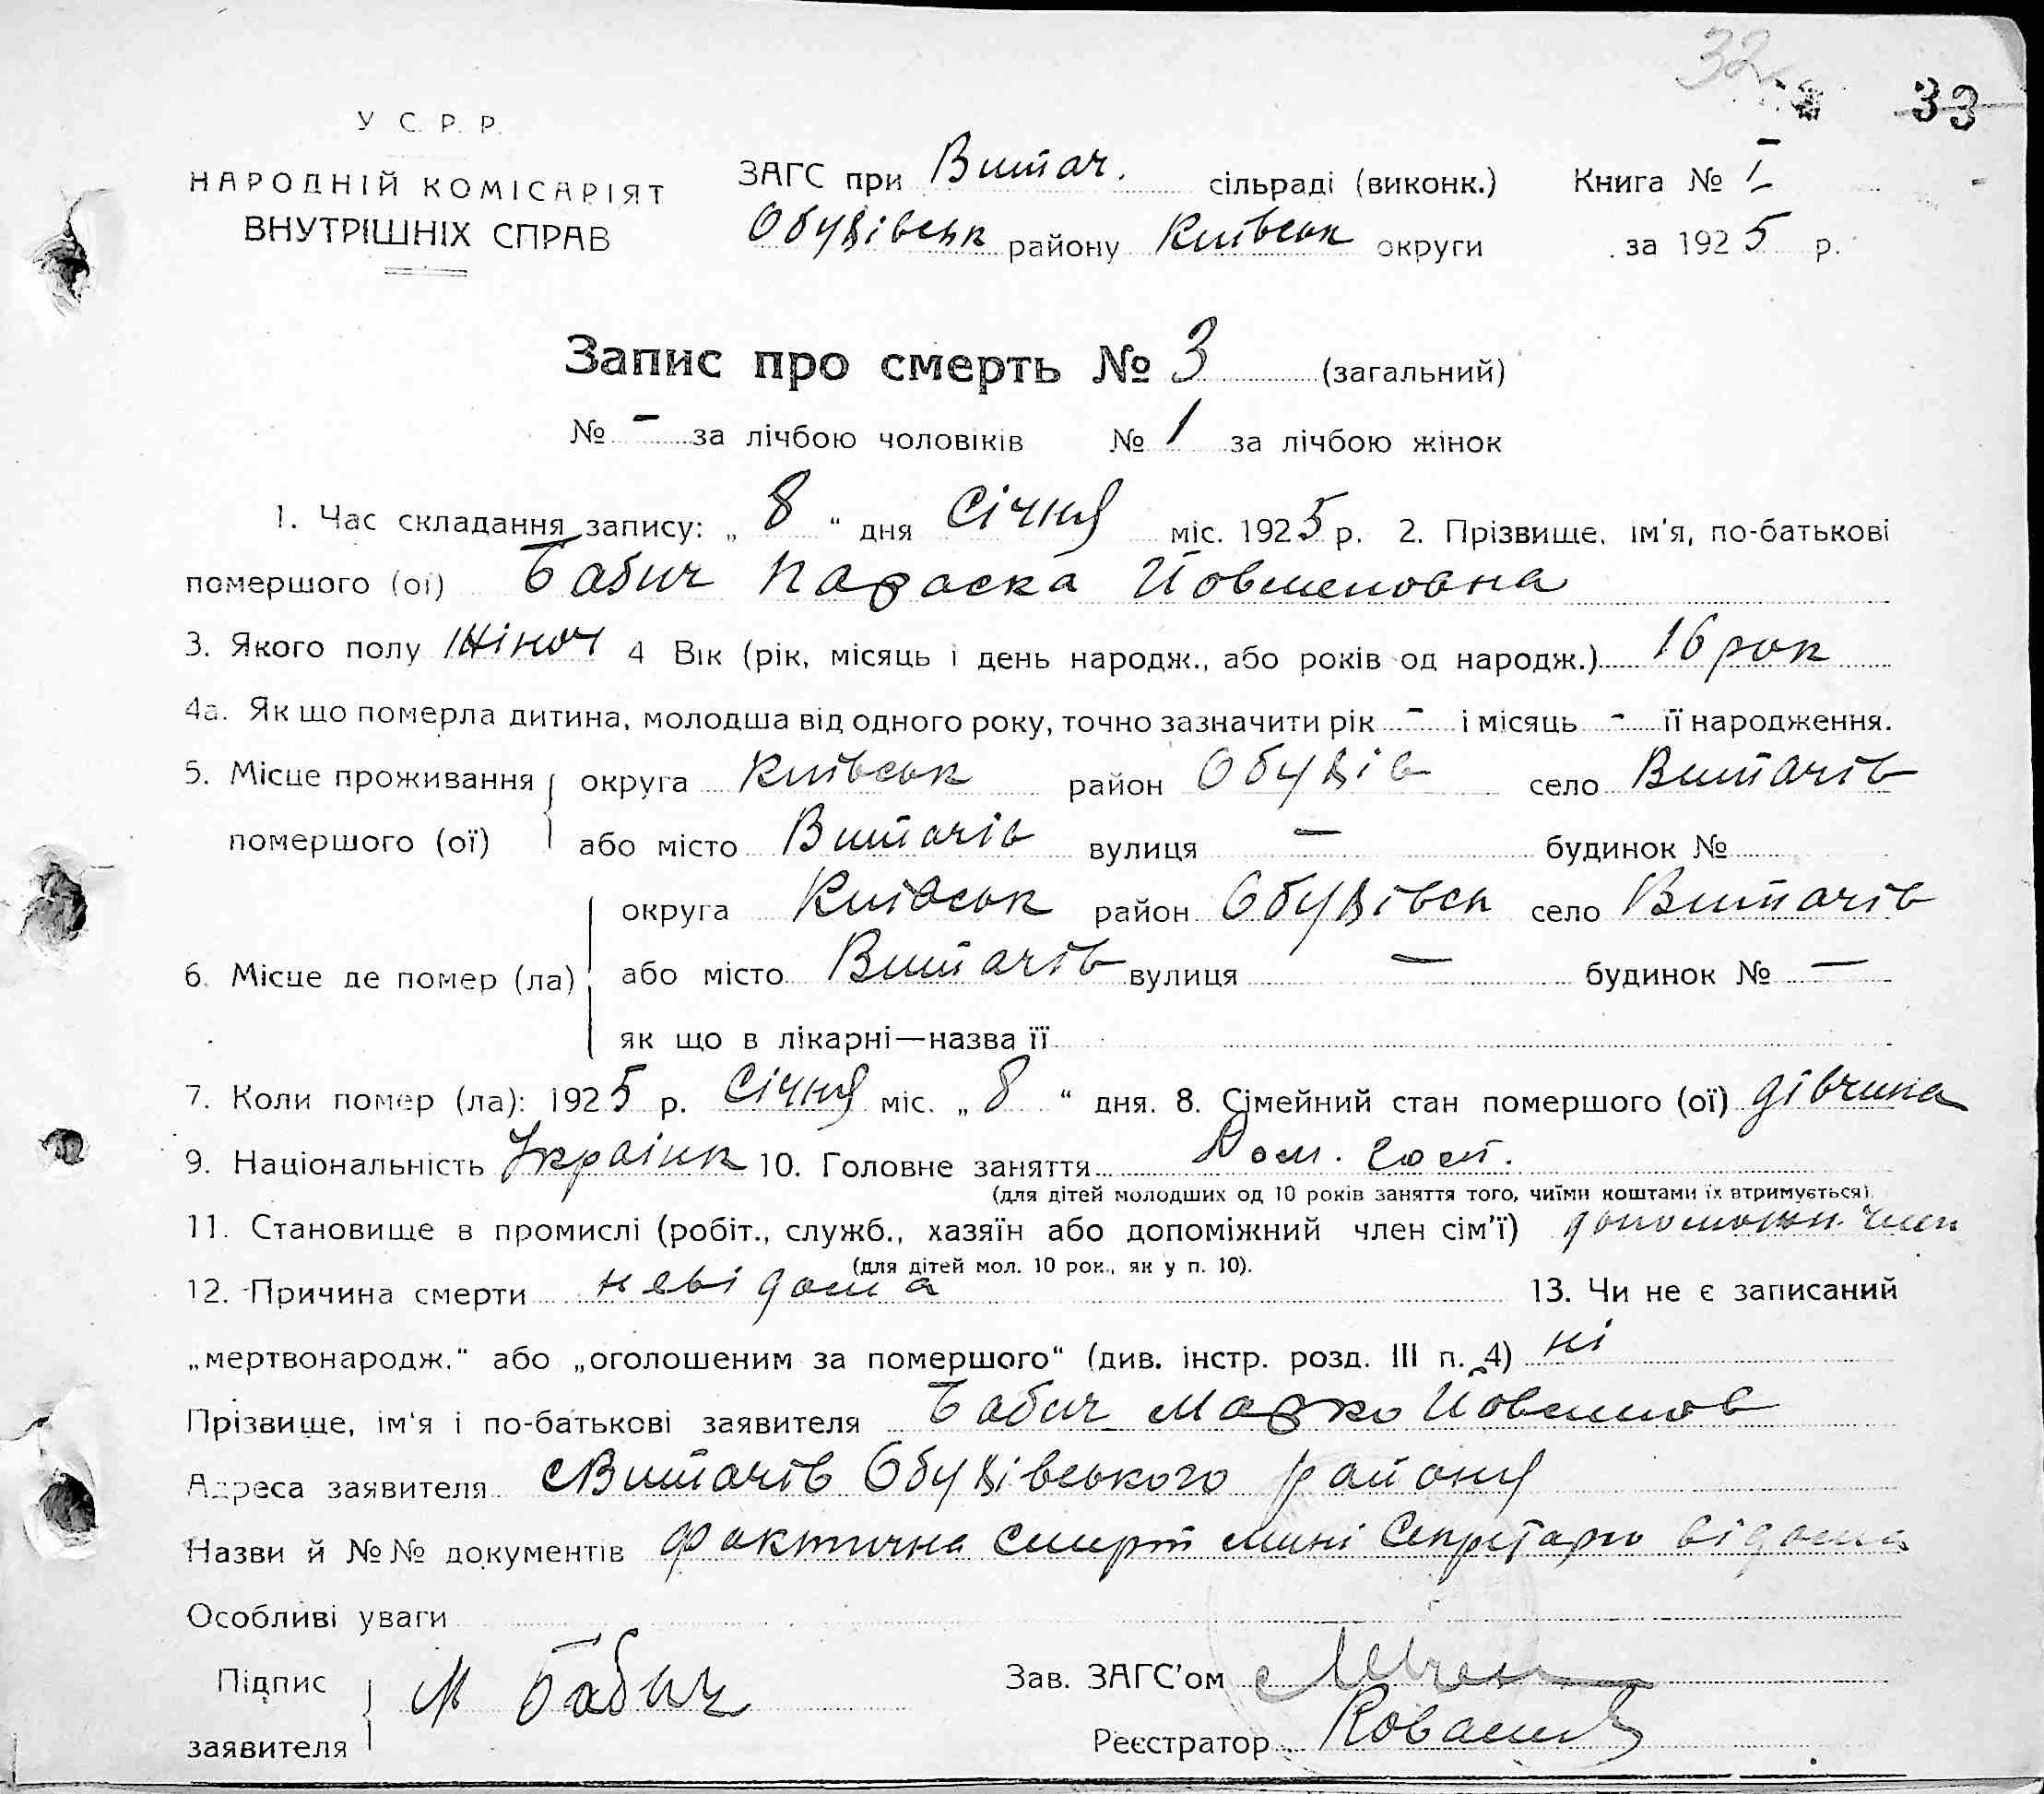 32
33
У С. Р. Р.
НАРОДНІЙ КОМІСАРІЯТ
ВНУТРІШНІХ СПРАВ
ЗАГС при Витач. сільраді (виконк.) Книга № I
Обухівськ району Київськ округи за 1925 р.
Запис про смерть № 3 (загальний)
№ - за лічбою чоловіків № 1 за лічбою жінок
1. Час складання запису: „ 8 “ дня Січня міс. 1925 р. 2. Прізвище, ім'я, по-батькові
помершого (ої) Бабич Параска Йовменовна
3. Якого полу жіноч 4 Вік (рік, місяць і день народж., або років од народж.) 16 рок
4а. Як що померла дитина, молодша від одного року, точно зазначити рік - і місяць - її народження.
5. Місце проживання округа Київськ район Обухів село Витачів
помершого (ої) або місто Витачів вулиця — будинок №
округа Київськ район Обухівск село Витачів
6. Місце де помер (ла) або місто Витачів вулиця — будинок № —
як що в лікарні—назва її
7. Коли помер (ла): 1925 р. Січня міс. „ 8 “ дня. 8. Сімейний стан помершого (ої) дівчина
9. Національність Українк 10. Головне заняття Дом. госп.
(для дітей молодших од 10 років заняття того, чиїми коштами їх втримується)
11. Становище в промислі (робіт., служб., хазяїн або допоміжний член сім'ї) допоможн. член
(для дітей мол. 10 рок., як у п. 10).
12. Причина смерти невідома 13. Чи не є записаний
„мертвонародж.“ або „оголошеним за помершого“ (див. інстр. розд. III п. 4) ні
Прізвище, ім'я і по-батькові заявителя Бабич Марко Йовменов
Адреса заявителя с Витачів Обухівського району
Назви й №№ документів фактична смерт мині Секретарю відома
Особливі уваги
Підпис заявителя М Бабич
Зав. ЗАГС'ом
Реєстратор